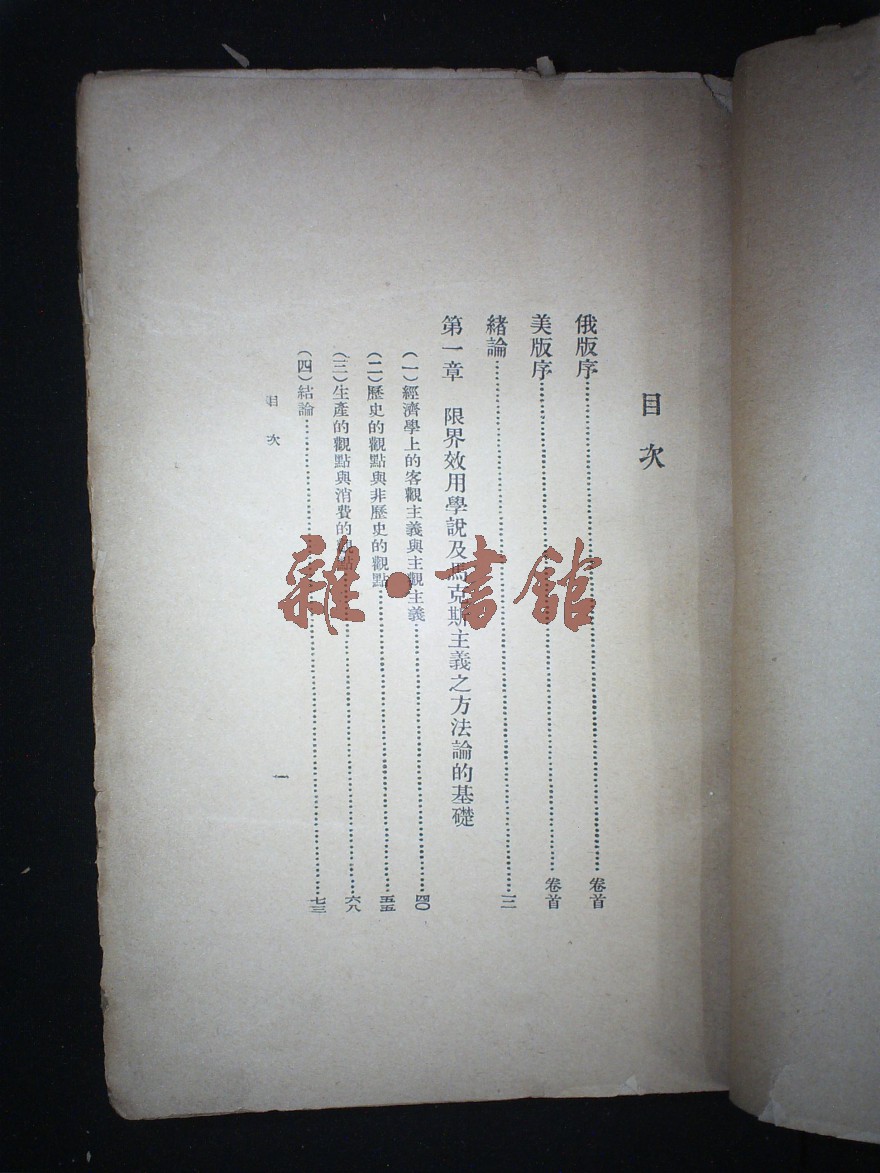 目次
俄版序……卷首
美版序……卷首
緒論……三
第一章 限界效用學說及馬克斯主義之方法論的基礎
(一)經濟學上的客觀主義與主觀主義……四〇
(二)歷史的觀點與非歷史的觀點……五五
(三)生產的觀點與消費的觀點……六八
(四)結論……七三
目次
一
雜·書館